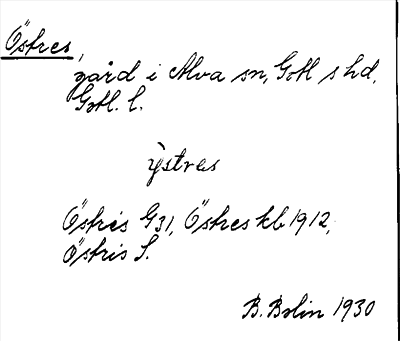 Östres,
gård i Alva sn, Gotl s hd,
Gotl. l.
ỳstres
Östris G31, Östres kb 1912,
Östris S.
B. Bolin 1930